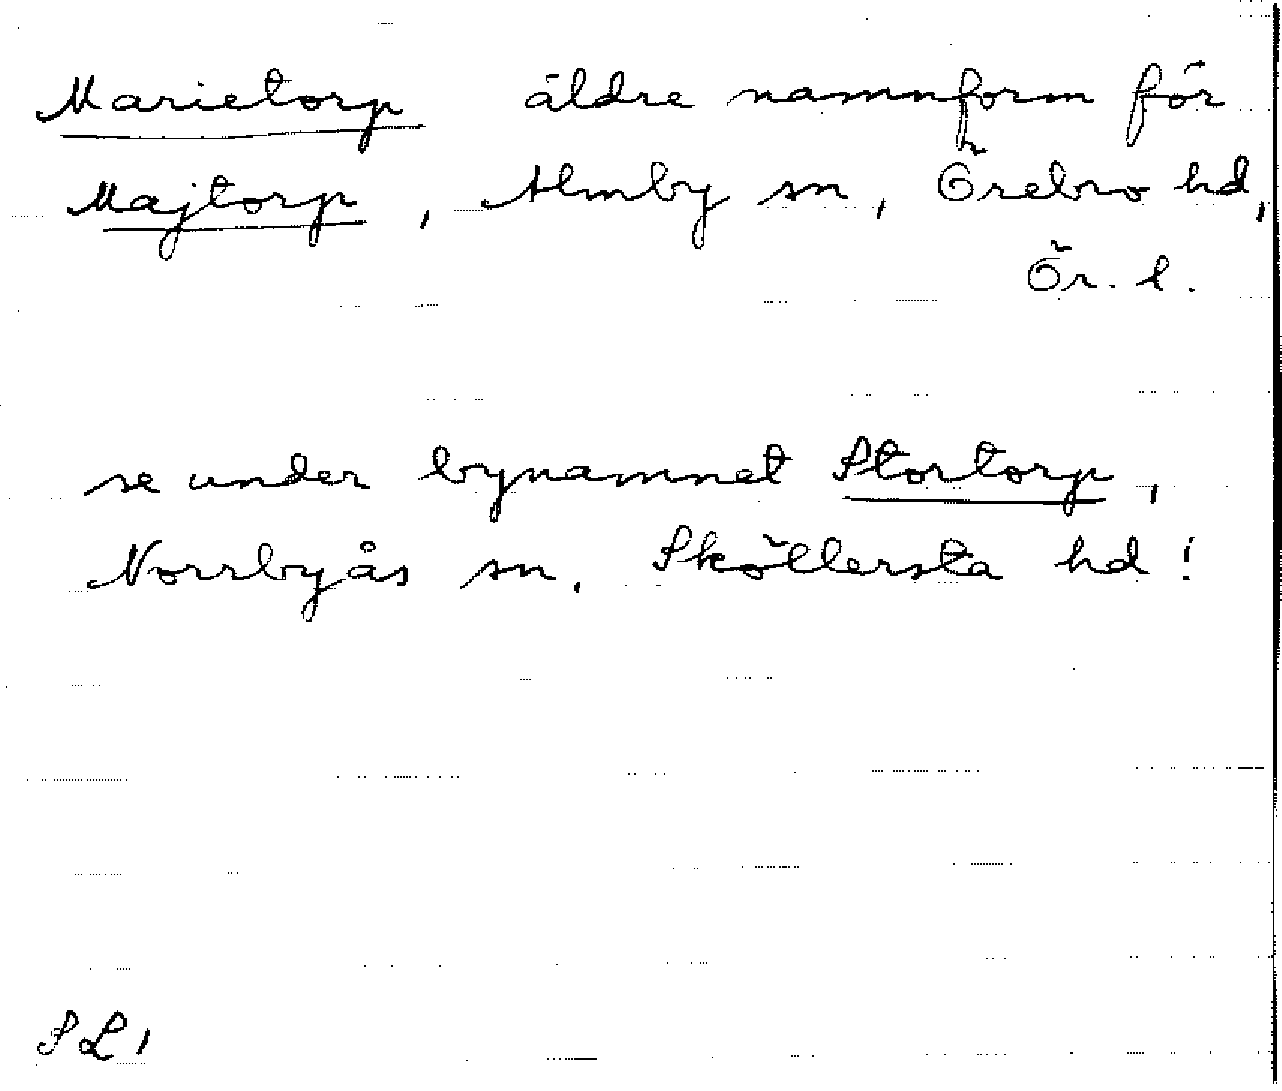 Marietorp äldre namnform för
Majtorp, Almby sn, Örebro hd,
Ör. l.
se under bynamnet Stortorp,
Norrbyås sn. Sköllersta hd!
SL1